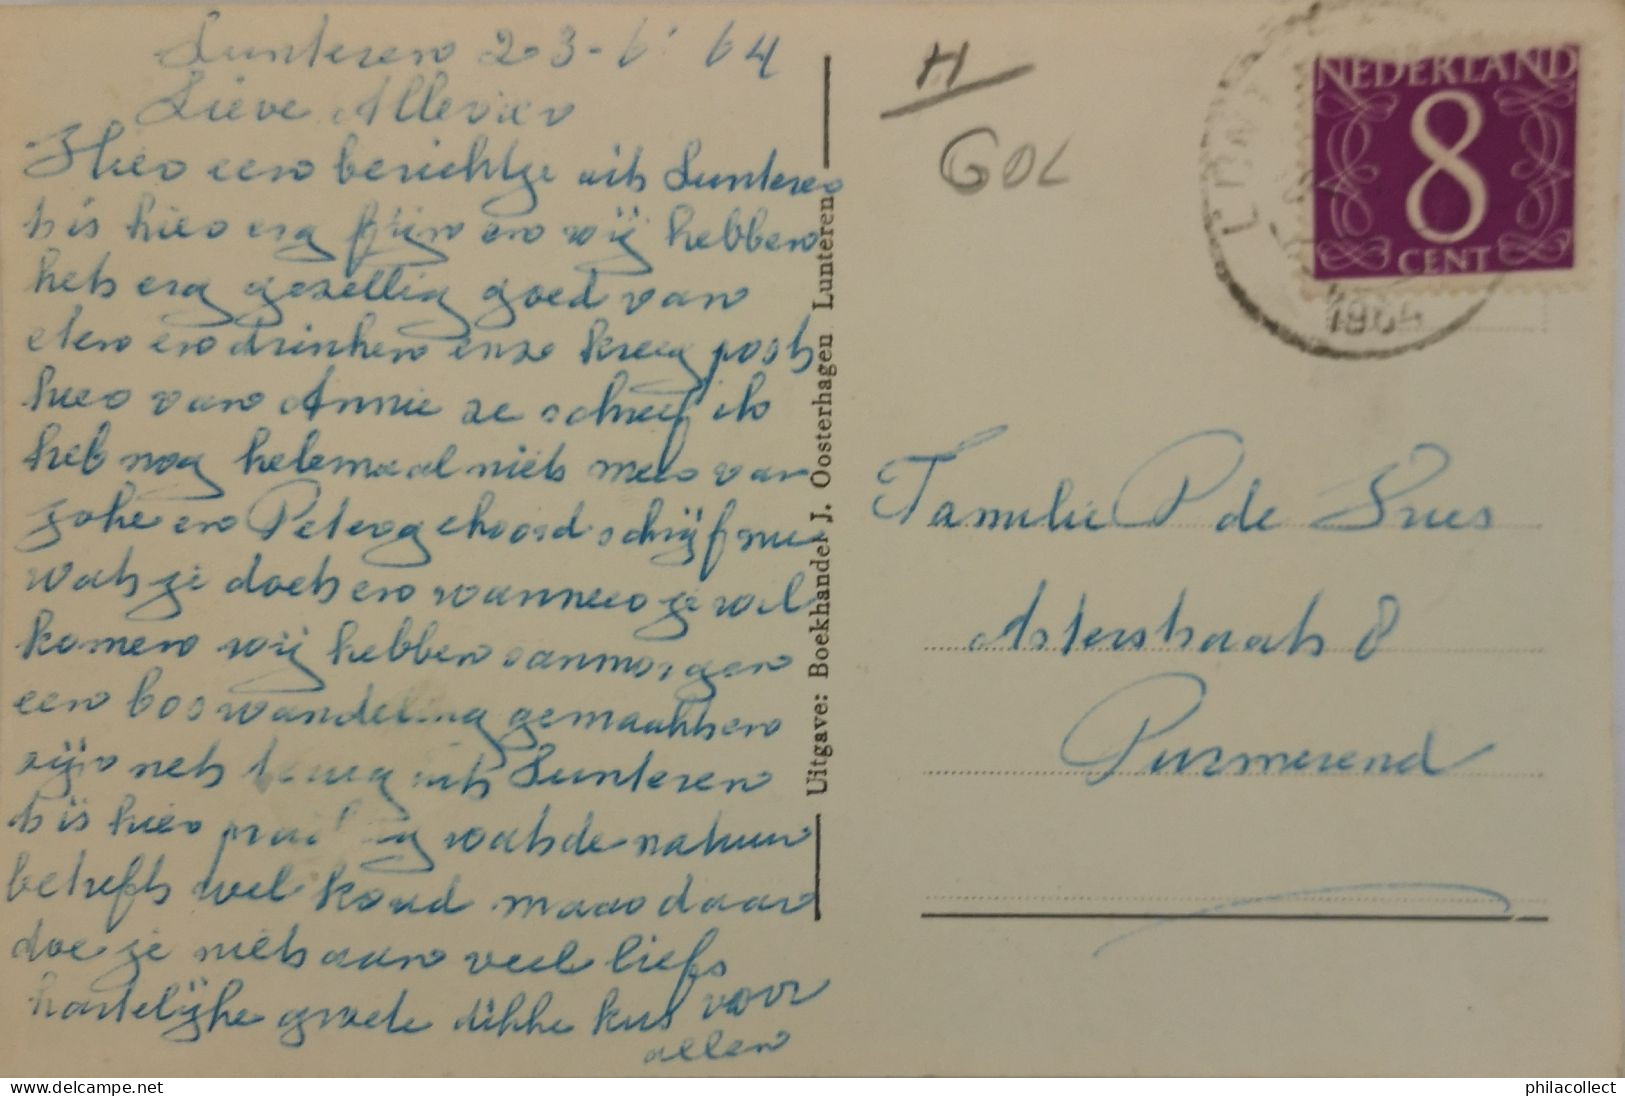 Lunteren 23-6'64
Lieve Allen
Hier een berichtje uit Lunteren
t is hier erg fijn en wij hebben
het erg gezellig goed van
eten en drinken enzo kreeg post
hier van Annie ze schreef ik
heb nog helemaal niets meer van
Joke en Peter gehoord schrijf me
wat ze doet en wanneer ze wil
komen wij hebben vanmorgen
een boswandeling gemaakt en
zijn net terug uit Lunteren
t is hier prachtig wat de natuur
betreft wel koud maar daar
doe je niets aan veel liefs
hartelijke groete dikke kus voor
allen
Uitgave: Boekhandel J. Oosterhagen Lunteren
H
GOL
NEDERLAND
8
CENT
1964
Familie P de Vries
Asterstraat 8
Purmerend
www.delcampe.net
philacollect